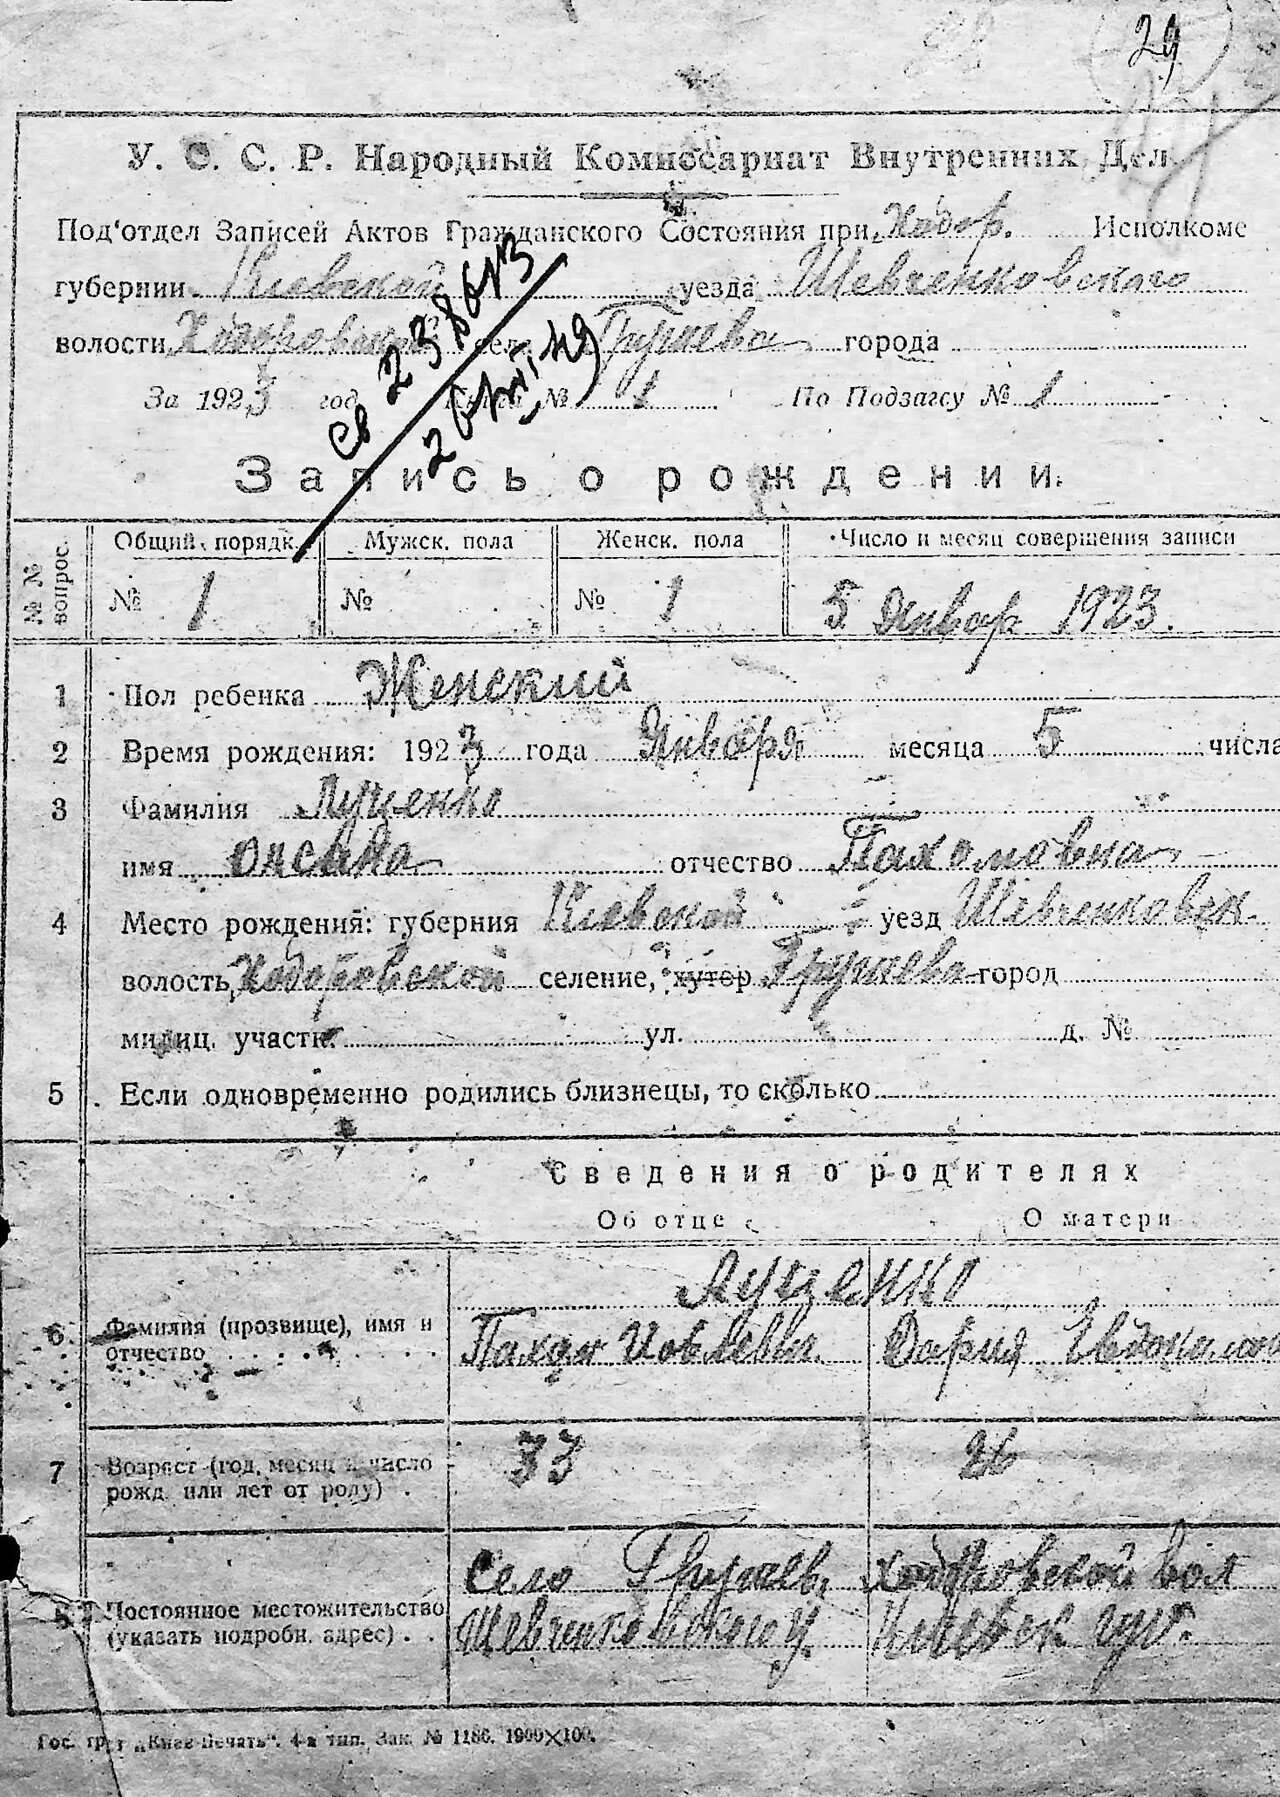 29
У. С. С. Р. Народный Комиссариат Внутренних Дел.
Под'отдел Записей Актов Гражданского Состояния при Ходор. Исполкоме
губернии Киевской уезда Шевченковского
волости Ходоровской сел. города
За 1923 год Книга № 1 По Подзагсу № 1
Св 238613
Запись о рождении.
№ № вопрос.
Общий порядк. Мужск. пола Женск. пола Число и месяц совершения записи
№ 1 № № 1 5 Январ 1923.
1 Пол ребенка Женский
2 Время рождения: 1923 года Января месяца 5 числа
3 Фамилия Луценко
имя Оксана отчество Пахомовна
4 Место рождения: губерния Киевской уезд Шевченковск.
волость, Ходоровской селение, хутор город
милиц. участк. ул. д. №
5 Если одновременно родились близнецы, то сколько
Сведения о родителях
Об отце О матери
Луценко
6. Фамилия (прозвище), имя и
отчество Пахом Иовлевич Дария
7 Возраст (год, месяц и число
рожд. или лет от роду) . 33 26
Село Ходоровской вол
8 Постоянное местожительство
(указать подробн. адрес) . . Шевченковского у. Киевск губ.
Гос. трест „Киев-Печать“. 4-я тип. Зак. № 1186. 1900×100.